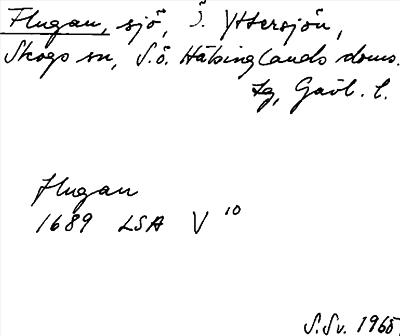 Flugan, sjö, Ö. Yttersjön,
Skogs sn, S.ö. Hälsinglands doms.
lg, Gävl. l.
Flugan
1689 LSA V 10
S.Sv. 1965